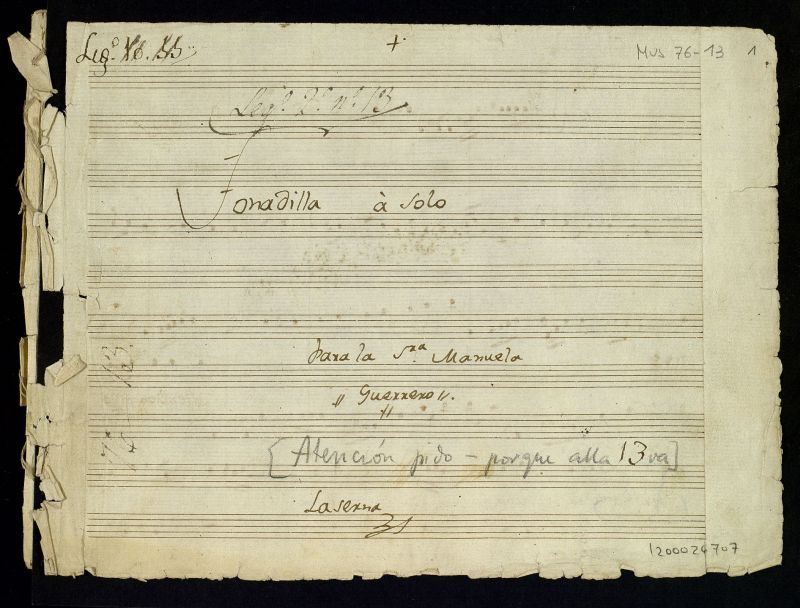 Leg.º
+
Mus 76-13
1
Leg.º 2.º n.º 13
Tonadilla à Solo
para la S.ra Manuela
„ Guerrero „.
[Atención pido - porque alla 13 va]
Laserna
1200024707